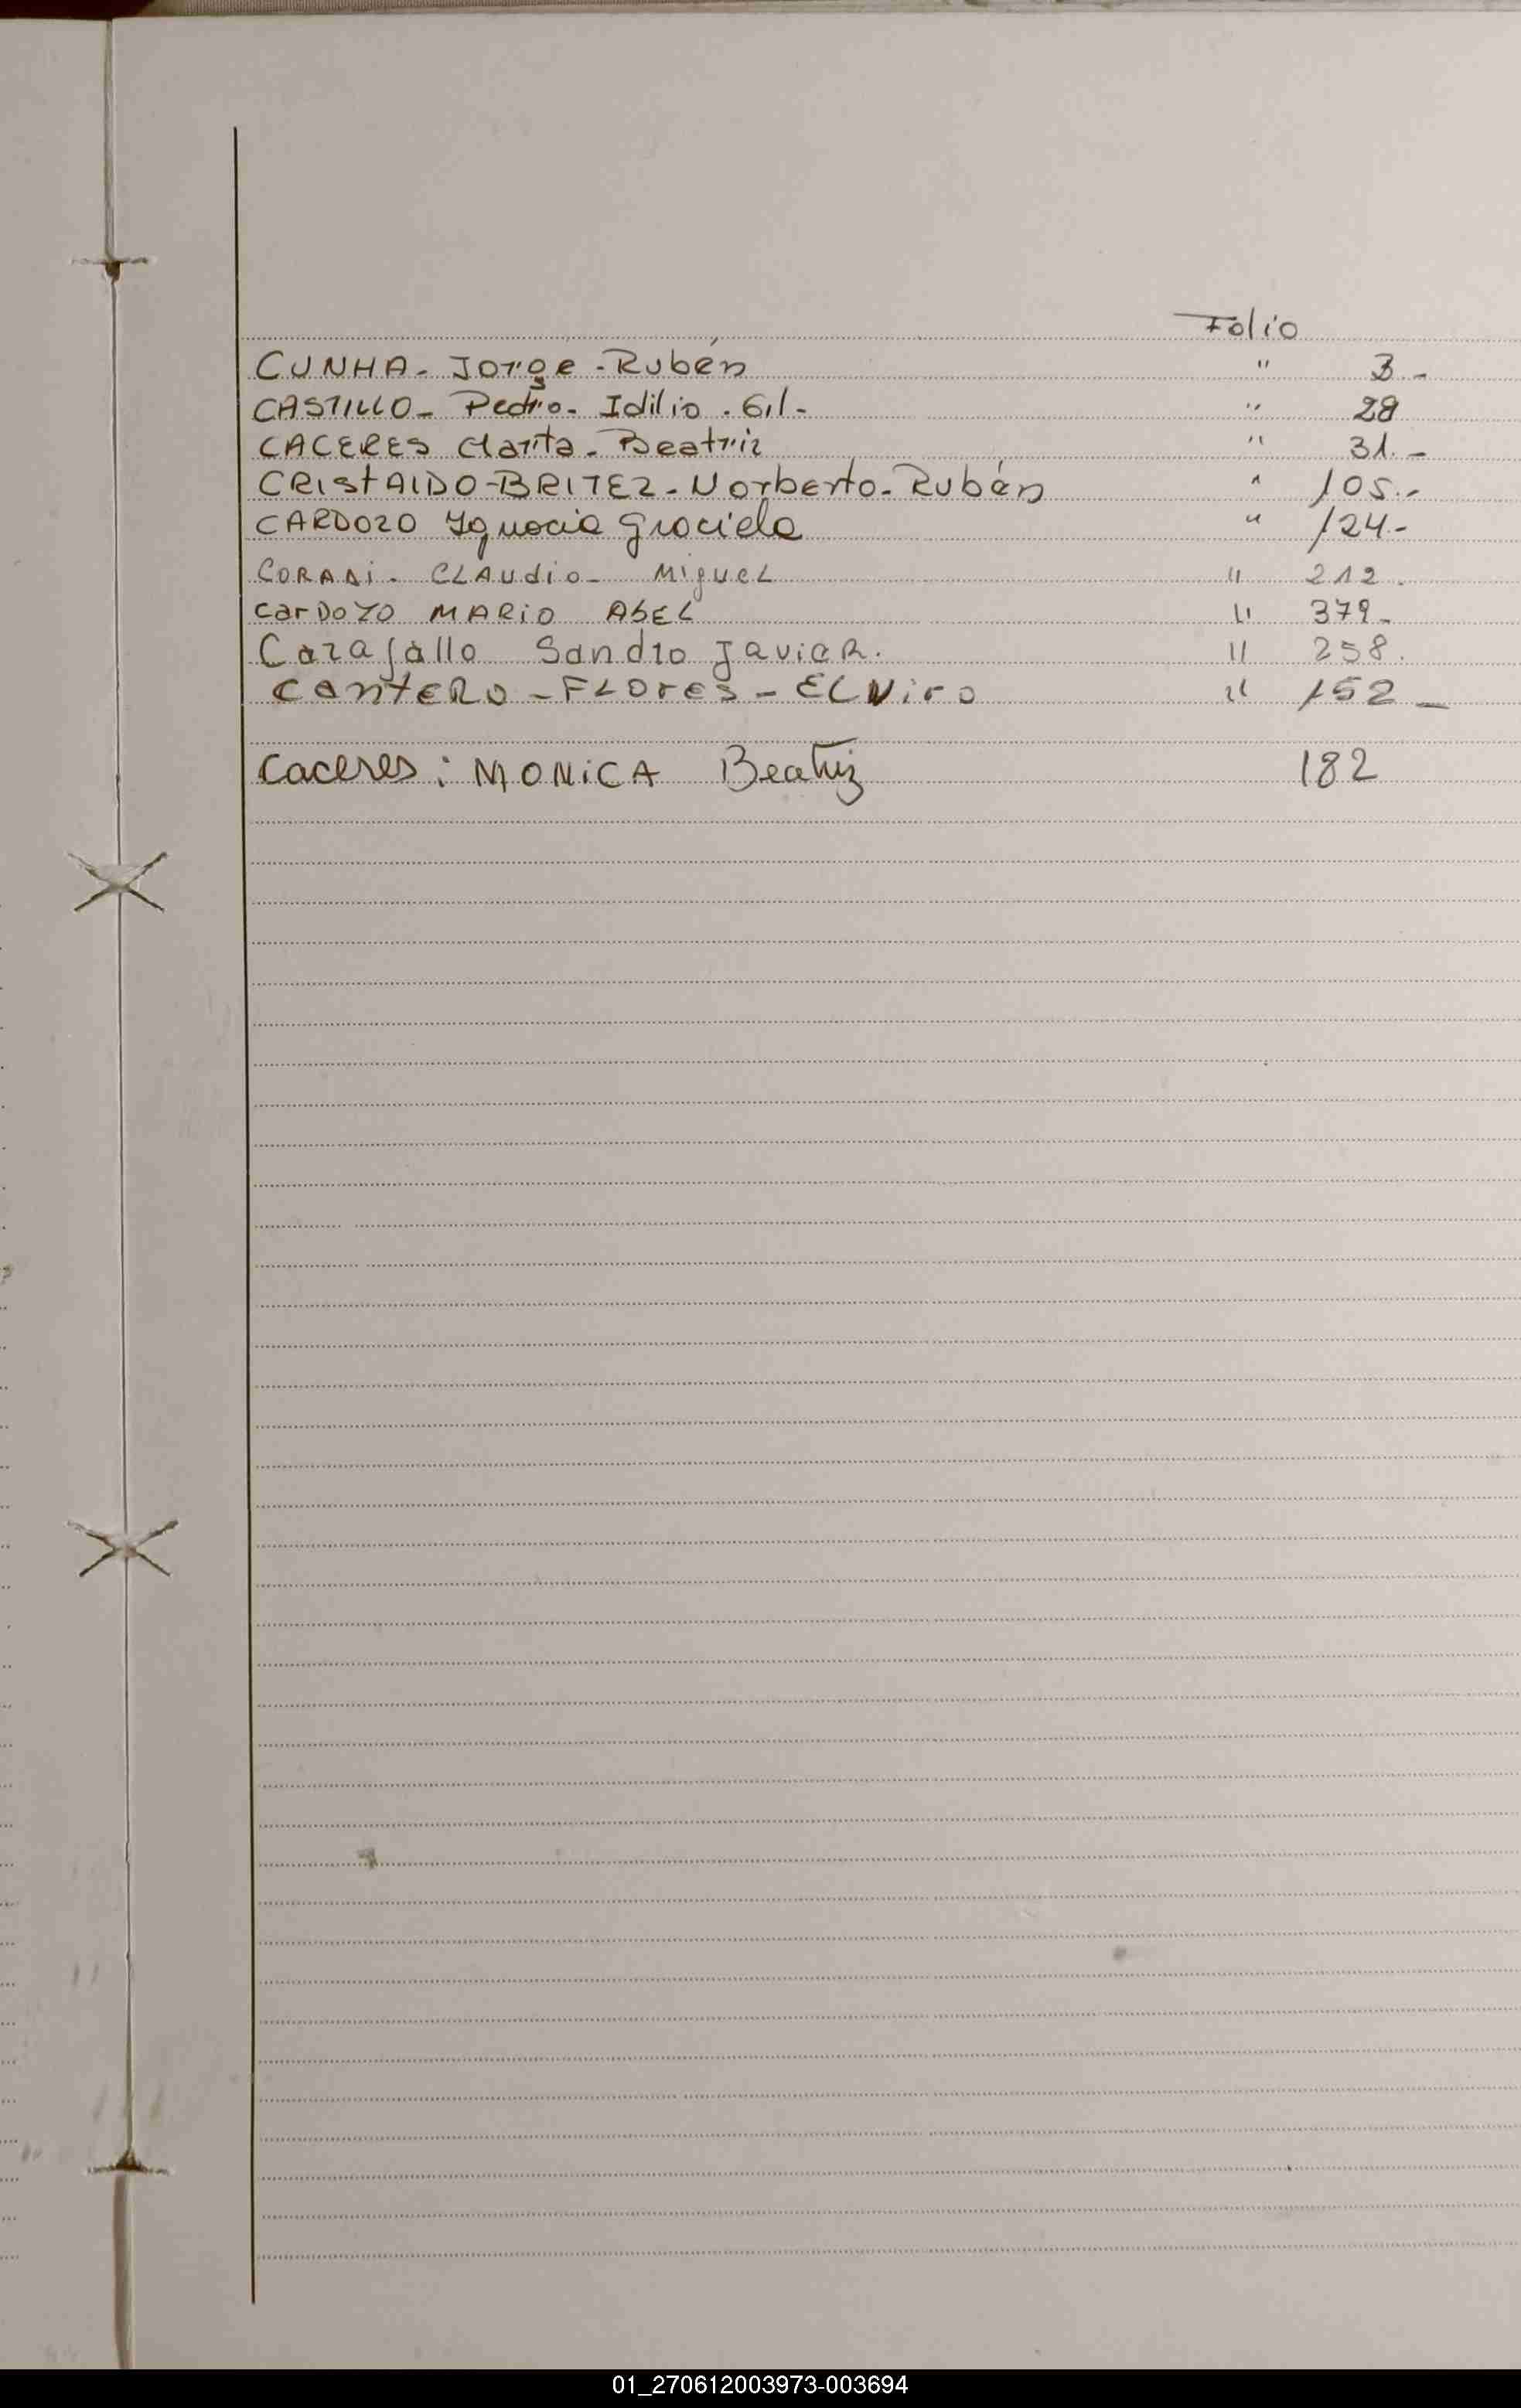 Folio
CUNHA - Jorge - Rubén " 3 -
CASTILLO - Pedro - Idilio . Gil - " 28
CACERES Clarita - Beatriz " 31. -
CRIStAlDO - BRITEZ - Norberto - Rubén " 105. -
CARDOZO Ygnacia Graciela " 124 -
CORADi - CLAudio - MiguEL " 212 .
CarDoZO MARiO AbEL " 379 -
Carafallo Sandro JavieR. " 258 .
CantERO - FLOres - ELViro " 152 -
Caceres : MONiCA Beatriz 182
01_270612003973-003694